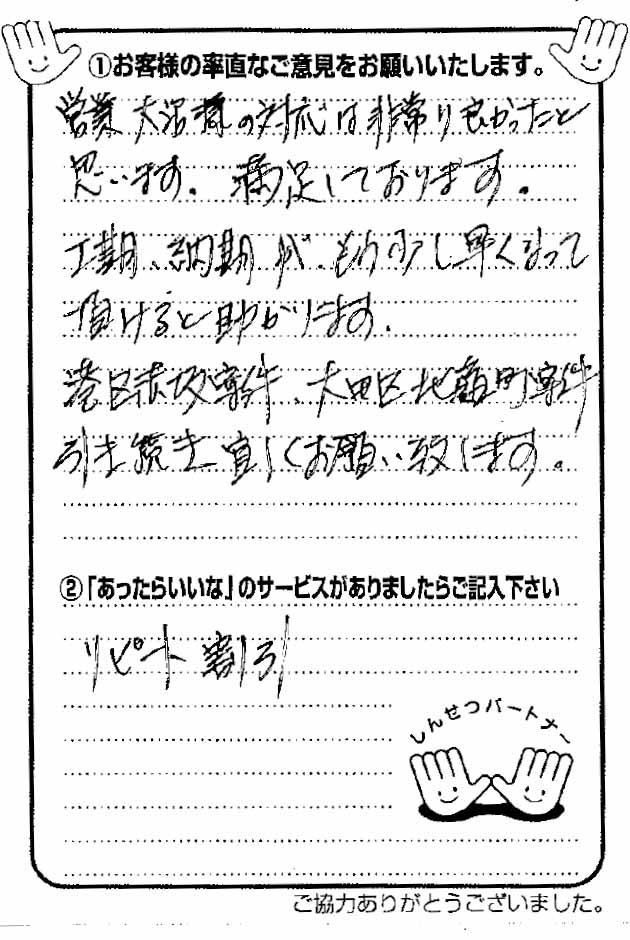 ①お客様の率直なご意見をお願いいたします。
営業 大沼様の対応は非常に良かったと
思います。満足しております。
工期、納期が、もう少し早くなって
頂けると助かります。
港区赤坂案件、大田区北嶺町案件
引き続き宜しくお願い致します。
②「あったらいいな」のサービスがありましたらご記入下さい
リピート割引
しんせつパートナー
ご協力ありがとうございました。